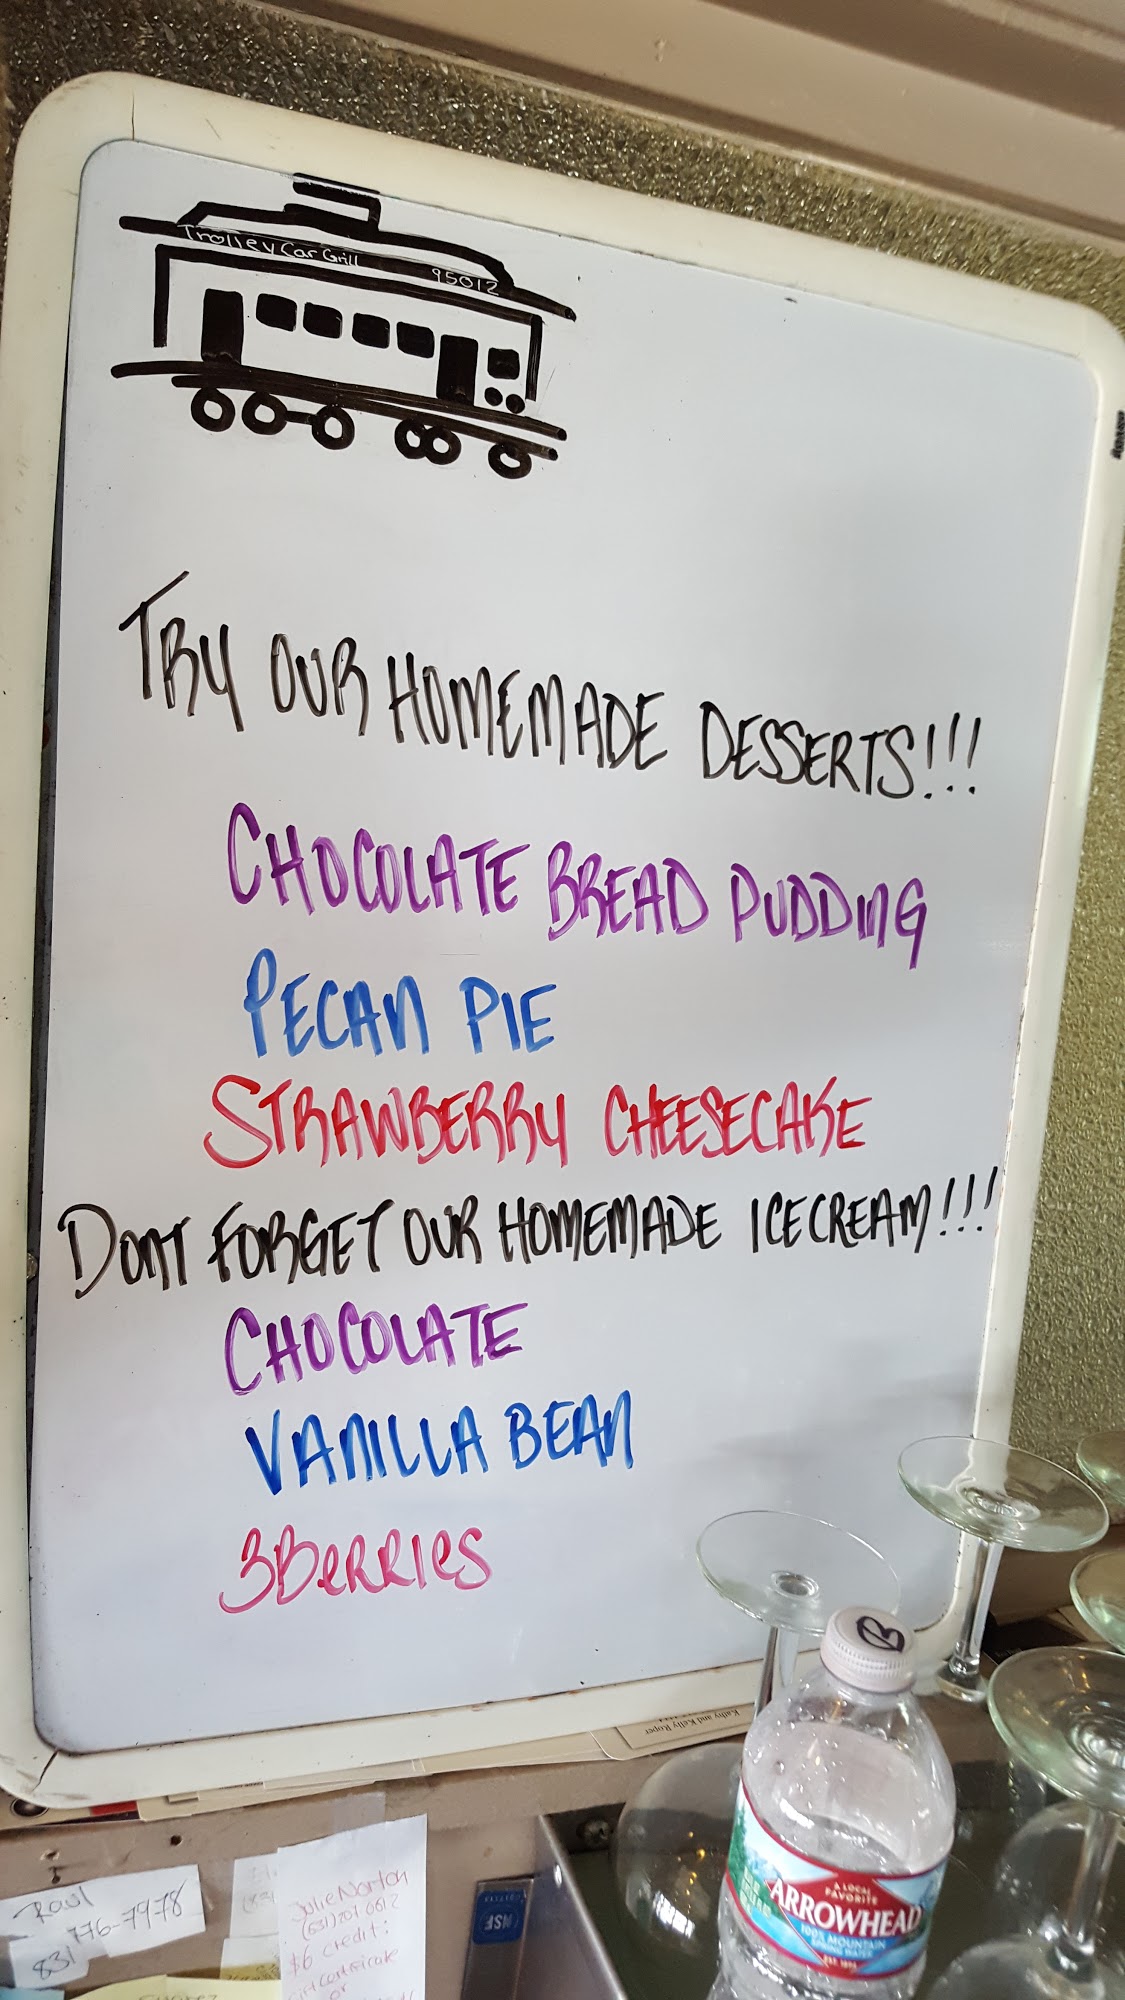 Trolley Car Grill 95012
TRY OUR HOMEMADE DESSERTS!!!
CHOCOLATE BREAD PUDDING
PECAN PIE
STRAWBERRY CHEESECAKE
DONT FORGET OUR HOMEMADE ICECREAM!!!
CHOCOLATE
VANILLA BEAN
3BERRIES
B
Kathy and Kelly Roper
A LOCAL
FAVORITE
ARROWHEAD
100% MOUNTAIN
SPRING WATER
NSF
Raul
776-7978
831
Julie Norton
$6 credit:
or